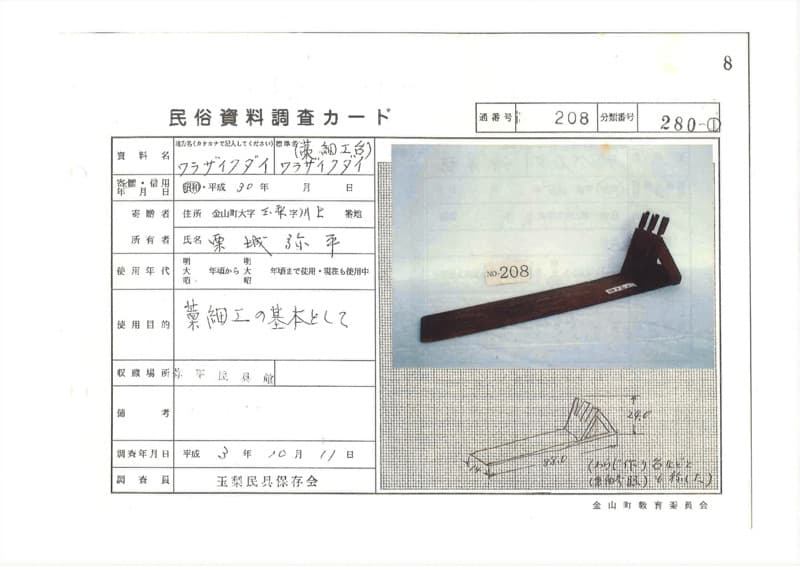 8
民俗資料調査カード
通番号 208 分類番号 280-①
資料名 地方名(カタカナで記入してください) ワラザイクダイ 標準名 (藁細工台) ワラザイクダイ
寄贈・借用年月日 昭和・平成 30年 月 日
寄贈者 住所 金山町大字 玉梨字川上 番地
所有者 氏名 栗城 弥平
使用年代 明大昭 年頃から 明大昭 年頃まで使用・現在も使用中
使用目的 藁細工の基本として
収蔵場所 弥平民具館
備考
調査年月日 平成 3年 10月 11日
調査員 玉梨民具保存会
NO.208
24.0
88.0
14
(わらじ作り台などと
も称した)
金山町教育委員会